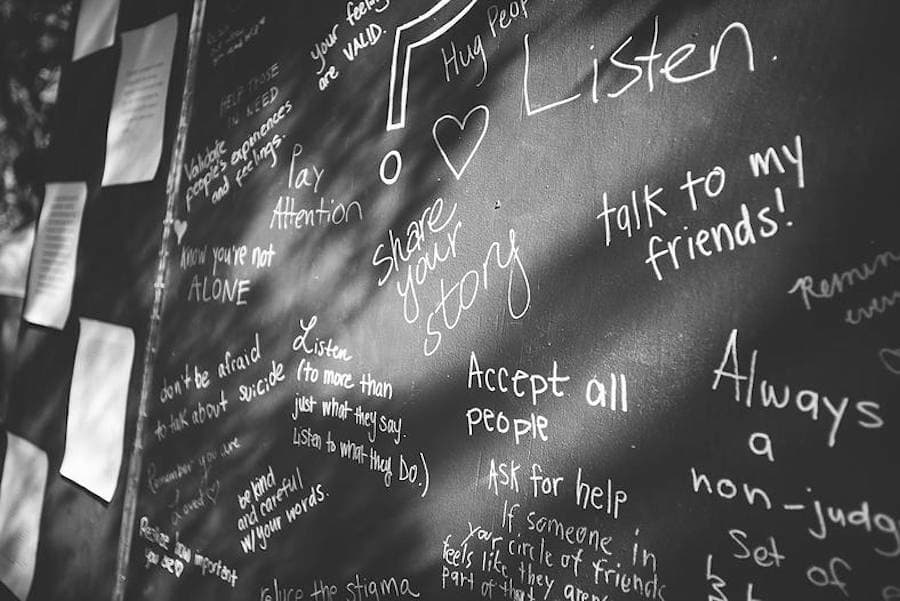 your feelings
are VALID.
Hug Peop
Listen.
HELP THOSE
IN NEED
Validate
people's experiences
and feelings.
Pay
Attention
share
your
story
talk to my
friends!
know you're not
ALONE
don't be afraid
to talk about suicide
Listen
(to more than
just what they say.
Listen to what they Do.)
Accept all
people
Always
a
non-judg
Set
of
Remember you are
Loved
be kind
and careful
w/ your words.
Ask for help
If someone in
your circle of friends
feels like they aren't
part of that
how important
you are
the stigma